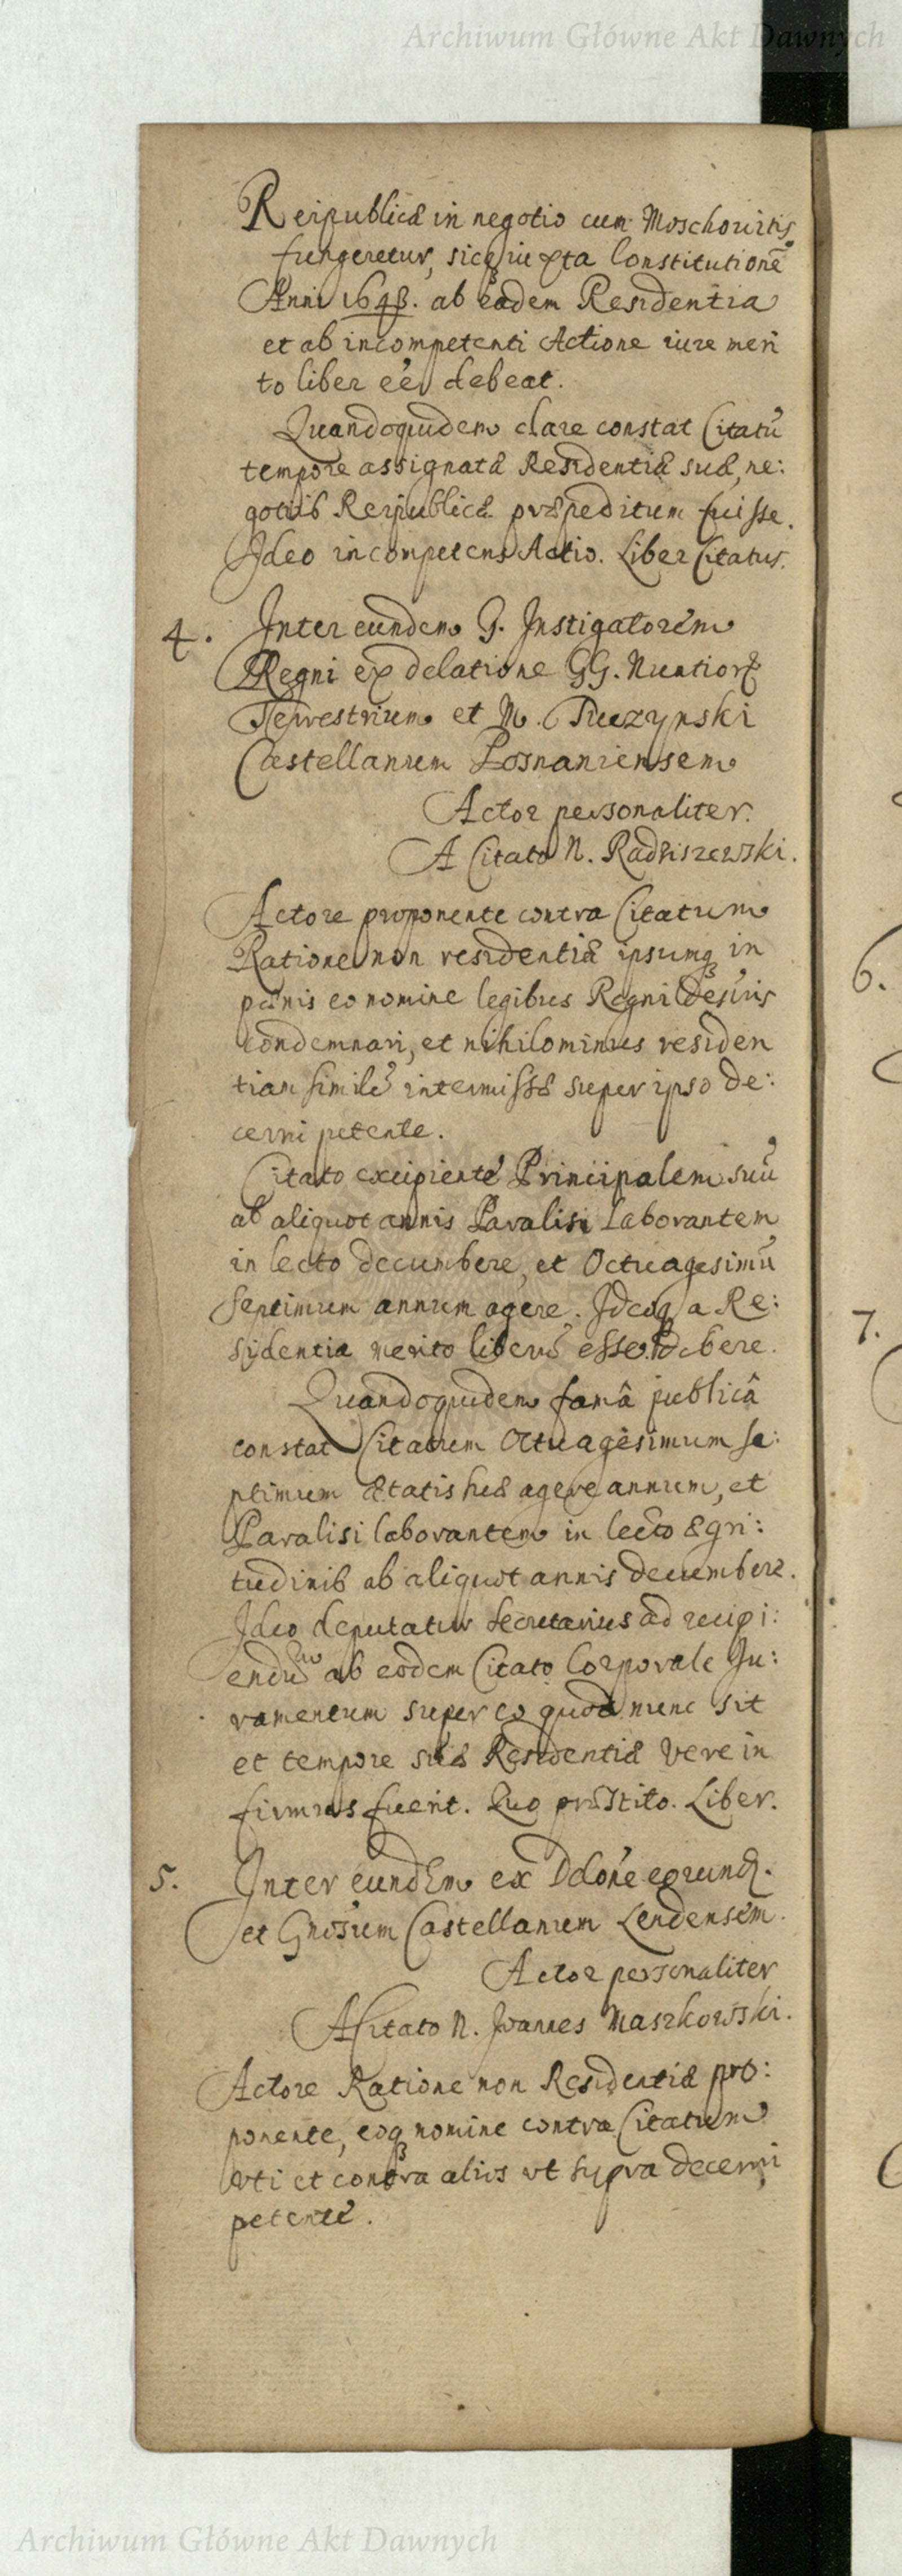 Archiwum Główne Akt Dawnych
Reipublicæ in negotio cum Moschovitis
fungeretur, sicq iuxta Constitutionē
Anni 1648. ab eadem Residentia
et ab incompetenti Actione iure meri
to liber eē debeat.
Quandoquidem clare constat Citatū
tempore assignatæ Residentiæ suæ, ne:
gotiis Reipublicæ præpeditum fuisse.
Ideo incompetens Actio. Liber Citatus.
4. Inter eundem G. Instigatorem
Regni ex delatione GG. Nuntiorꝝ
Terrestrium et M.
Castellanum Posnaniensem
Actor personaliter.
A Citato N. Radziszewski.
Actore proponente contra Citatum
Ratione non residentiæ ipsumq in
pœnis eo nomine legibus Regni
condemnari, et nihilominus residen
tiam intermissæ super ipso de:
cerni petente.
Citato excipiente Principalem suū
ab aliquot annis Paralisi Laborantem
in lecto decumbere, et Octuagesimū
Septimum annum agere. Ideoq a Re:
sidentia merito liberū esse debere.
Quandoquidem famâ publicâ
constat Citatum Octuagesimum se:
ptimum ætatis suæ agere annum, et
Paralisi laborantem in lecto ægri:
tudinis ab aliquot annis decumbere.
Ideo deputatur Secretarius ad recipi:
endū ab eodem Citato Corporale Ju:
ramentum super eo quod nunc sit
et tempore suæ Residentiæ vere in
firmus fuerit. Quo præstito. Liber.
5. Inter eundem ex Dlone eorund.
et Gnosum Castellanum Lendensem.
Actor personaliter
A Citato N. Joannes Maszkowski.
Actore Ratione non Residentiæ pro:
ponente, eoq nomine contra Citatum
uti et contra alios ut supra decerni
petente.
6.
7.
Archiwum Główne Akt Dawnych